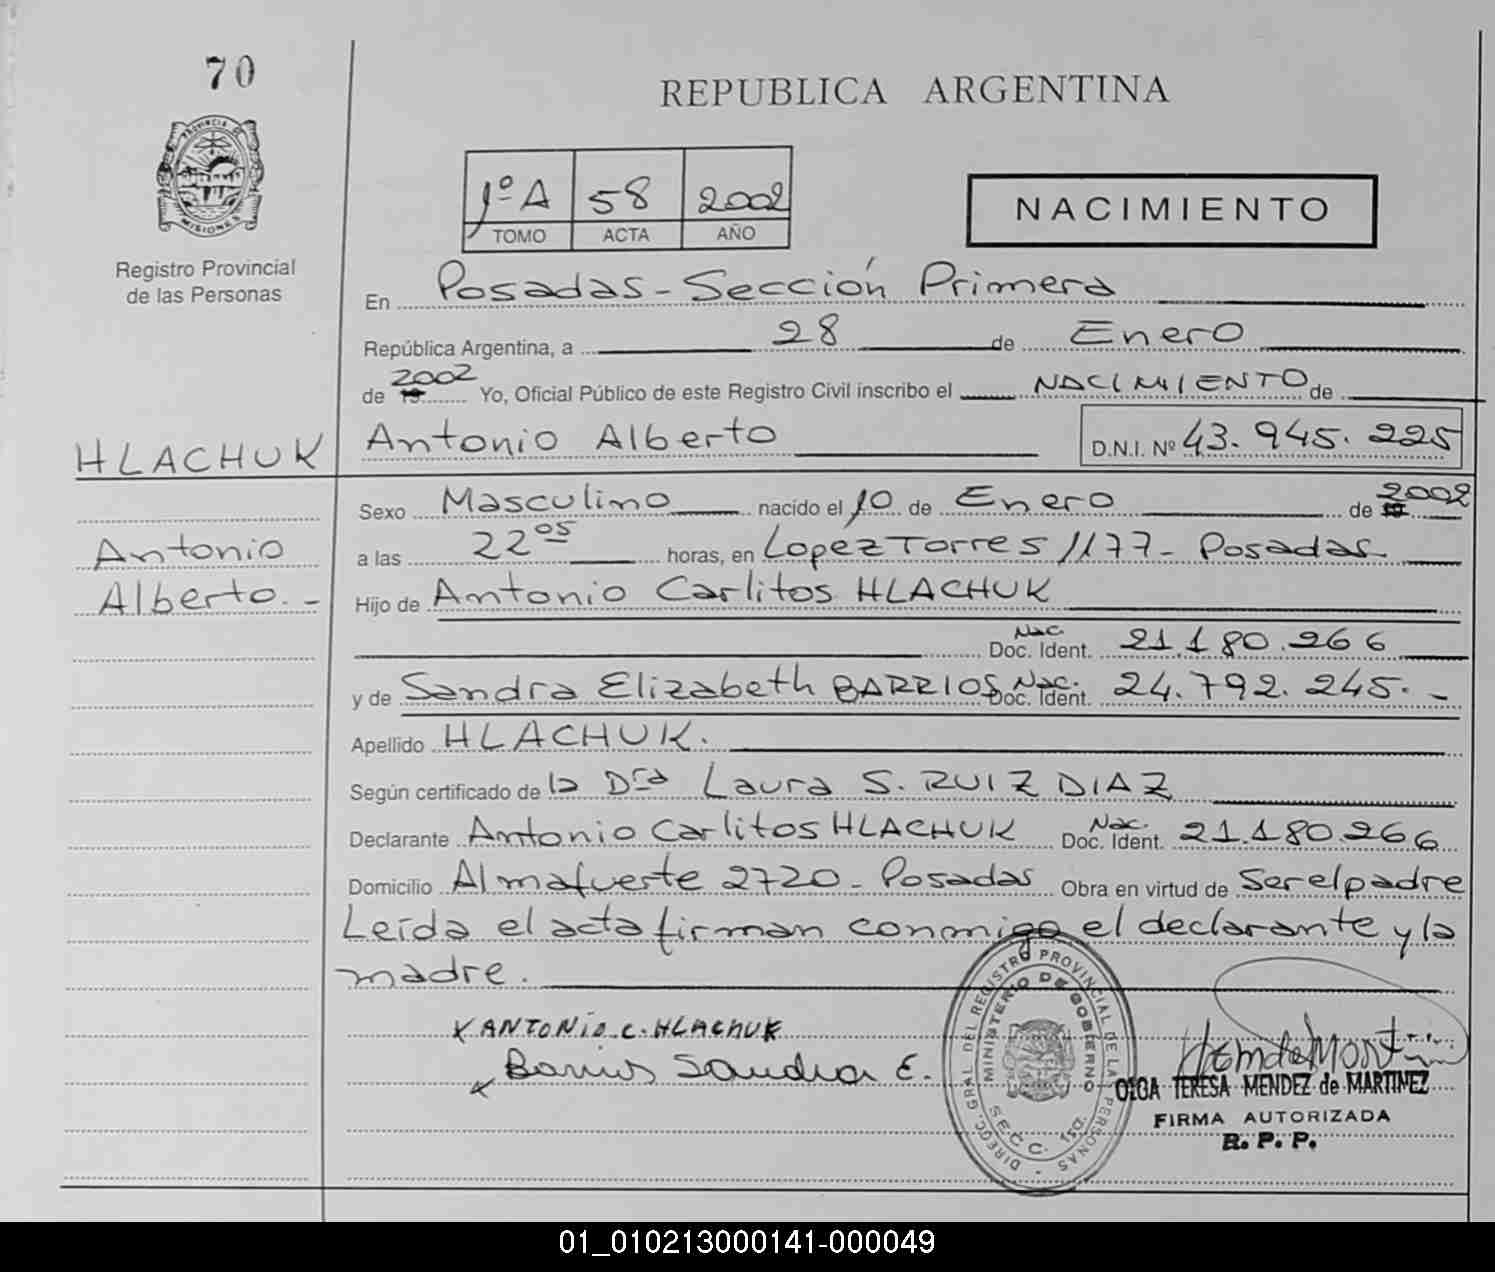 70
REPUBLICA ARGENTINA
PROVINCIA DE
MISIONES
Registro Provincial
de las Personas
1º A 58 2002
TOMO ACTA AÑO
NACIMIENTO
En Posadas - Sección Primera
República Argentina, a 28 de Enero
de 2002 Yo, Oficial Público de este Registro Civil inscribo el NACIMIENTO de
HLACHUK Antonio Alberto D.N.I. Nº 43.945.225
Sexo Masculino nacido el 10 de Enero de 2002
Antonio a las 22 05 horas, en Lopez Torres 1177 - Posadas
Alberto.- Hijo de Antonio Carlitos HLACHUK
Nac. Doc. Ident. 21.180.266
y de Sandra Elizabeth BARRIOS Nac. Doc. Ident. 24.792.245.-
Apellido HLACHUK.
Según certificado de la Dra Laura S. RUIZ DIAZ
Declarante Antonio Carlitos HLACHUK Nac. Doc. Ident. 21.180.266
Domicilio Almafuerte 2720 - Posadas Obra en virtud de Ser el padre
Leída el acta firman conmigo el declarante y la
madre.
x ANTONIO.C.HLACHUK
x Barrios Sandra E.
DIREC. GRAL DEL REGISTRO PROVINCIAL DE LA PERSONAS
MINISTERIO DE GOBIERNO
SECC. 1ra.
OLGA TERESA MENDEZ de MARTINEZ
FIRMA AUTORIZADA
R. P. P.
01_010213000141-000049